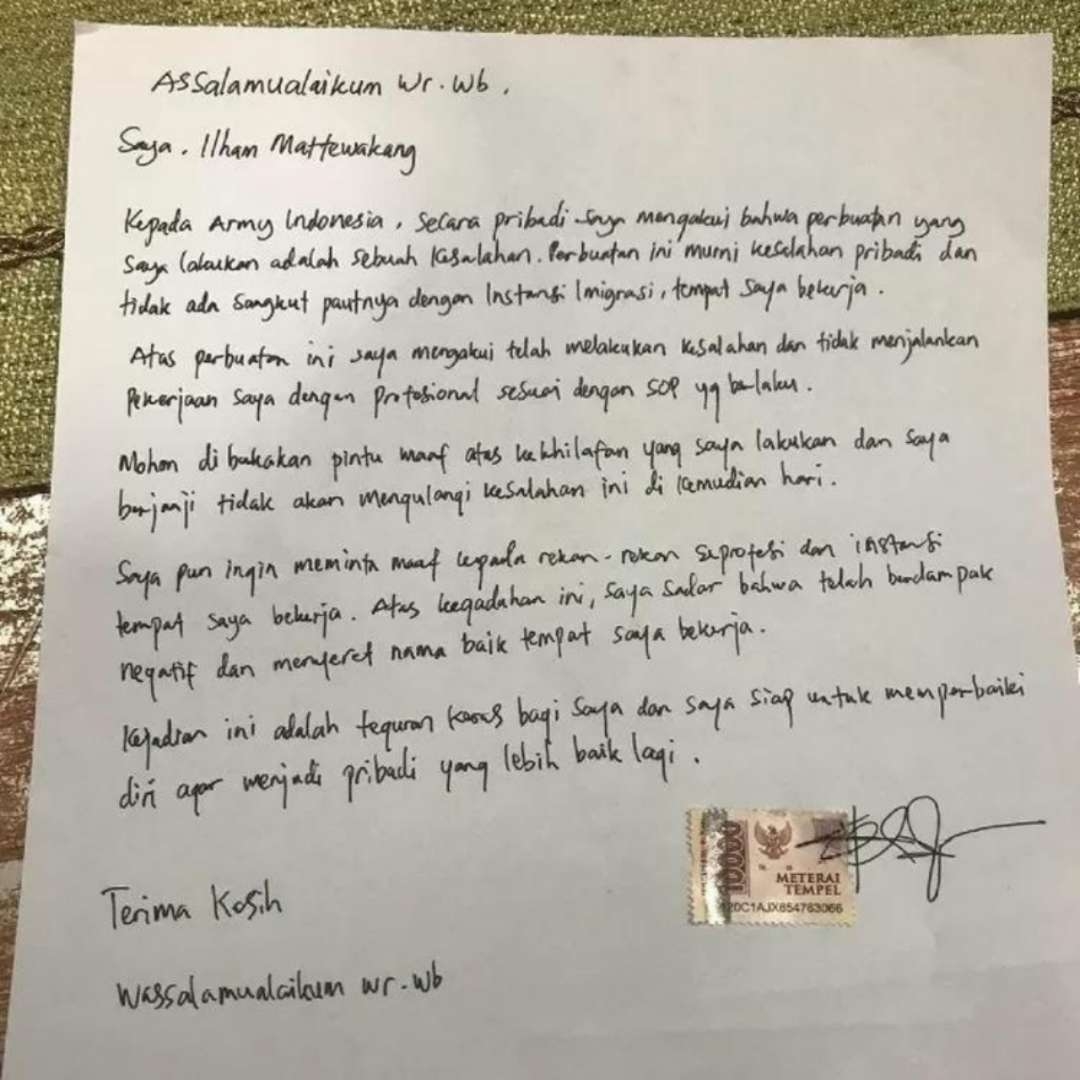 Assalamualaikum Wr. Wb.
Saya. Ilham Mattewakang
Kepada Army Indonesia, secara pribadi saya mengakui bahwa perbuatan yang
saya lakukan adalah sebuah kesalahan. Perbuatan ini murni kesalahan pribadi dan
tidak ada sangkut pautnya dengan Instansi Imigrasi, tempat saya bekerja.
Atas perbuatan ini saya mengakui telah melakukan kesalahan dan tidak menjalankan
pekerjaan saya dengan profesional sesuai dengan SOP yg berlaku.
Mohon di bukakan pintu maaf atas kekhilafan yang saya lakukan dan saya
berjanji tidak akan mengulangi kesalahan ini di kemudian hari.
Saya pun ingin meminta maaf kepada rekan-rekan seprofesi dan instansi
tempat saya bekerja. Atas kegaduhan ini, saya sadar bahwa telah berdampak
negatif dan menyeret nama baik tempat saya bekerja.
Kejadian ini adalah teguran keras bagi saya dan saya siap untuk memperbaiki
diri agar menjadi pribadi yang lebih baik lagi.
10000
METERAI
TEMPEL
20C1AJX854763066
Terima Kasih
Wassalamualaikum wr.wb